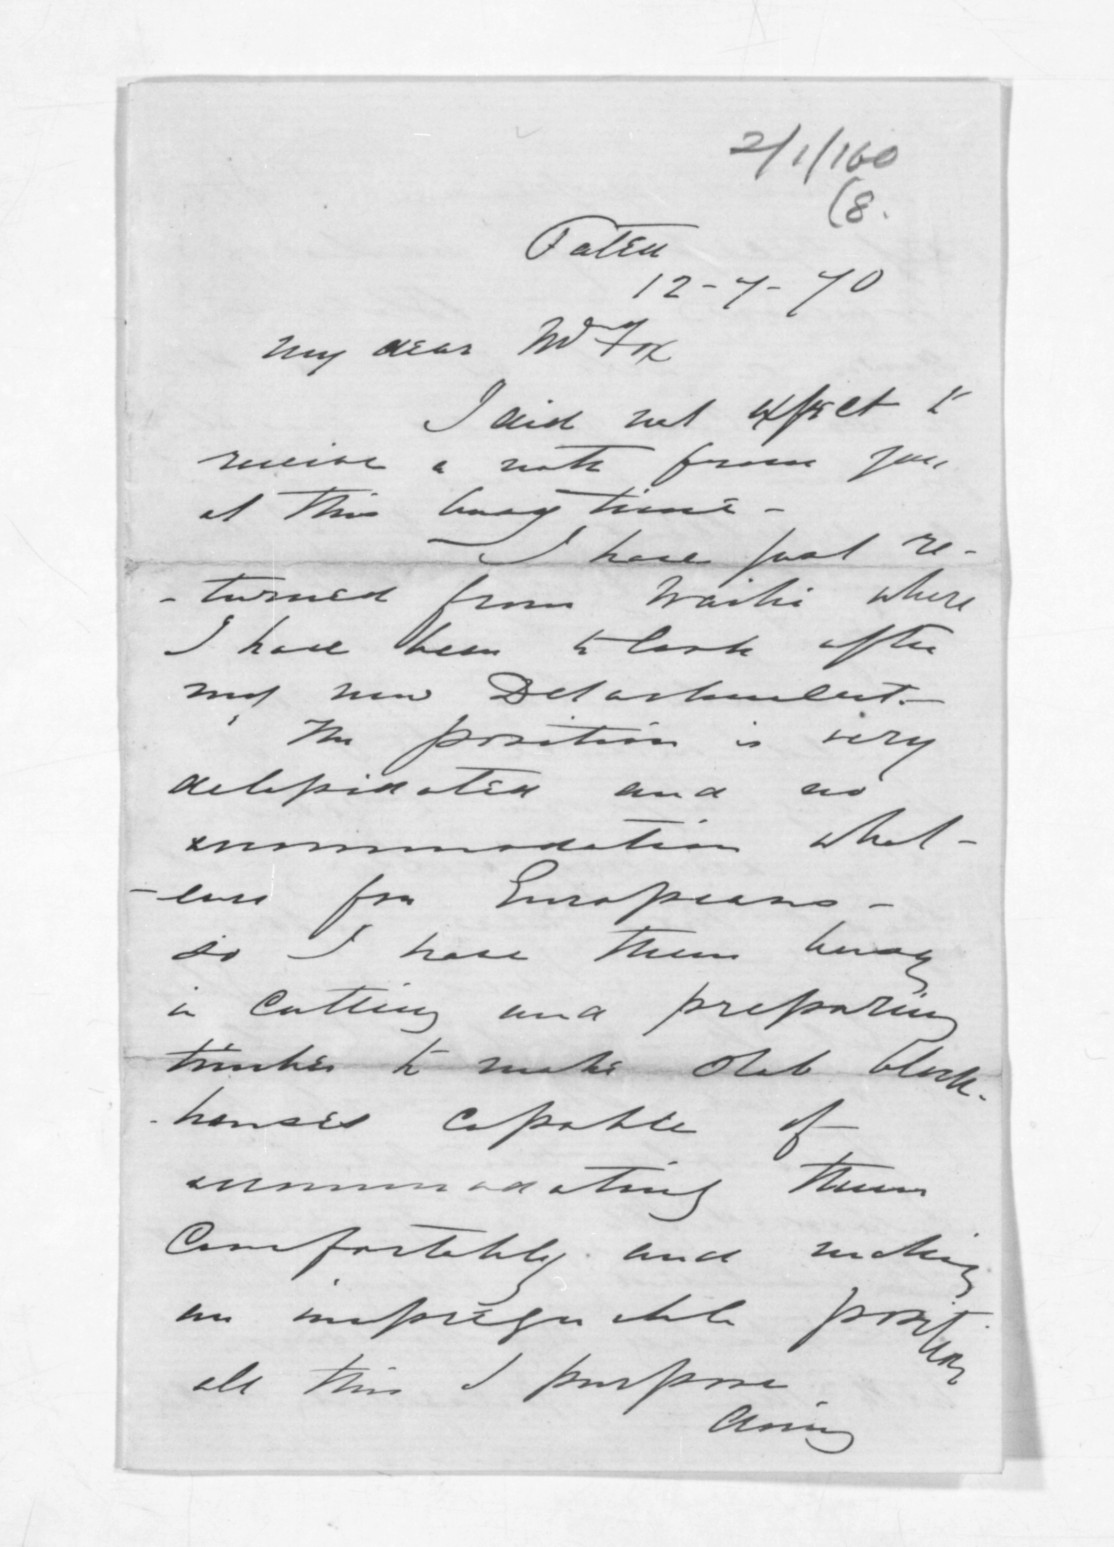 2/1/160
(8.
Patea
12-7-70
My dear Mr Fox
I did not expect to
receive a note from you,
at this busy time -
I have just re-
-turned from Waihi where
I have been to look after
my new Detachment. -
The position is very
delepidated and no
accommodation what-
-ever for Europeans -
so I have them busy
in cutting and preparing
timber to make slab block-
-houses capable of
accommodating them
Comfortably and making
an impregnable position
all this I purpose
doing